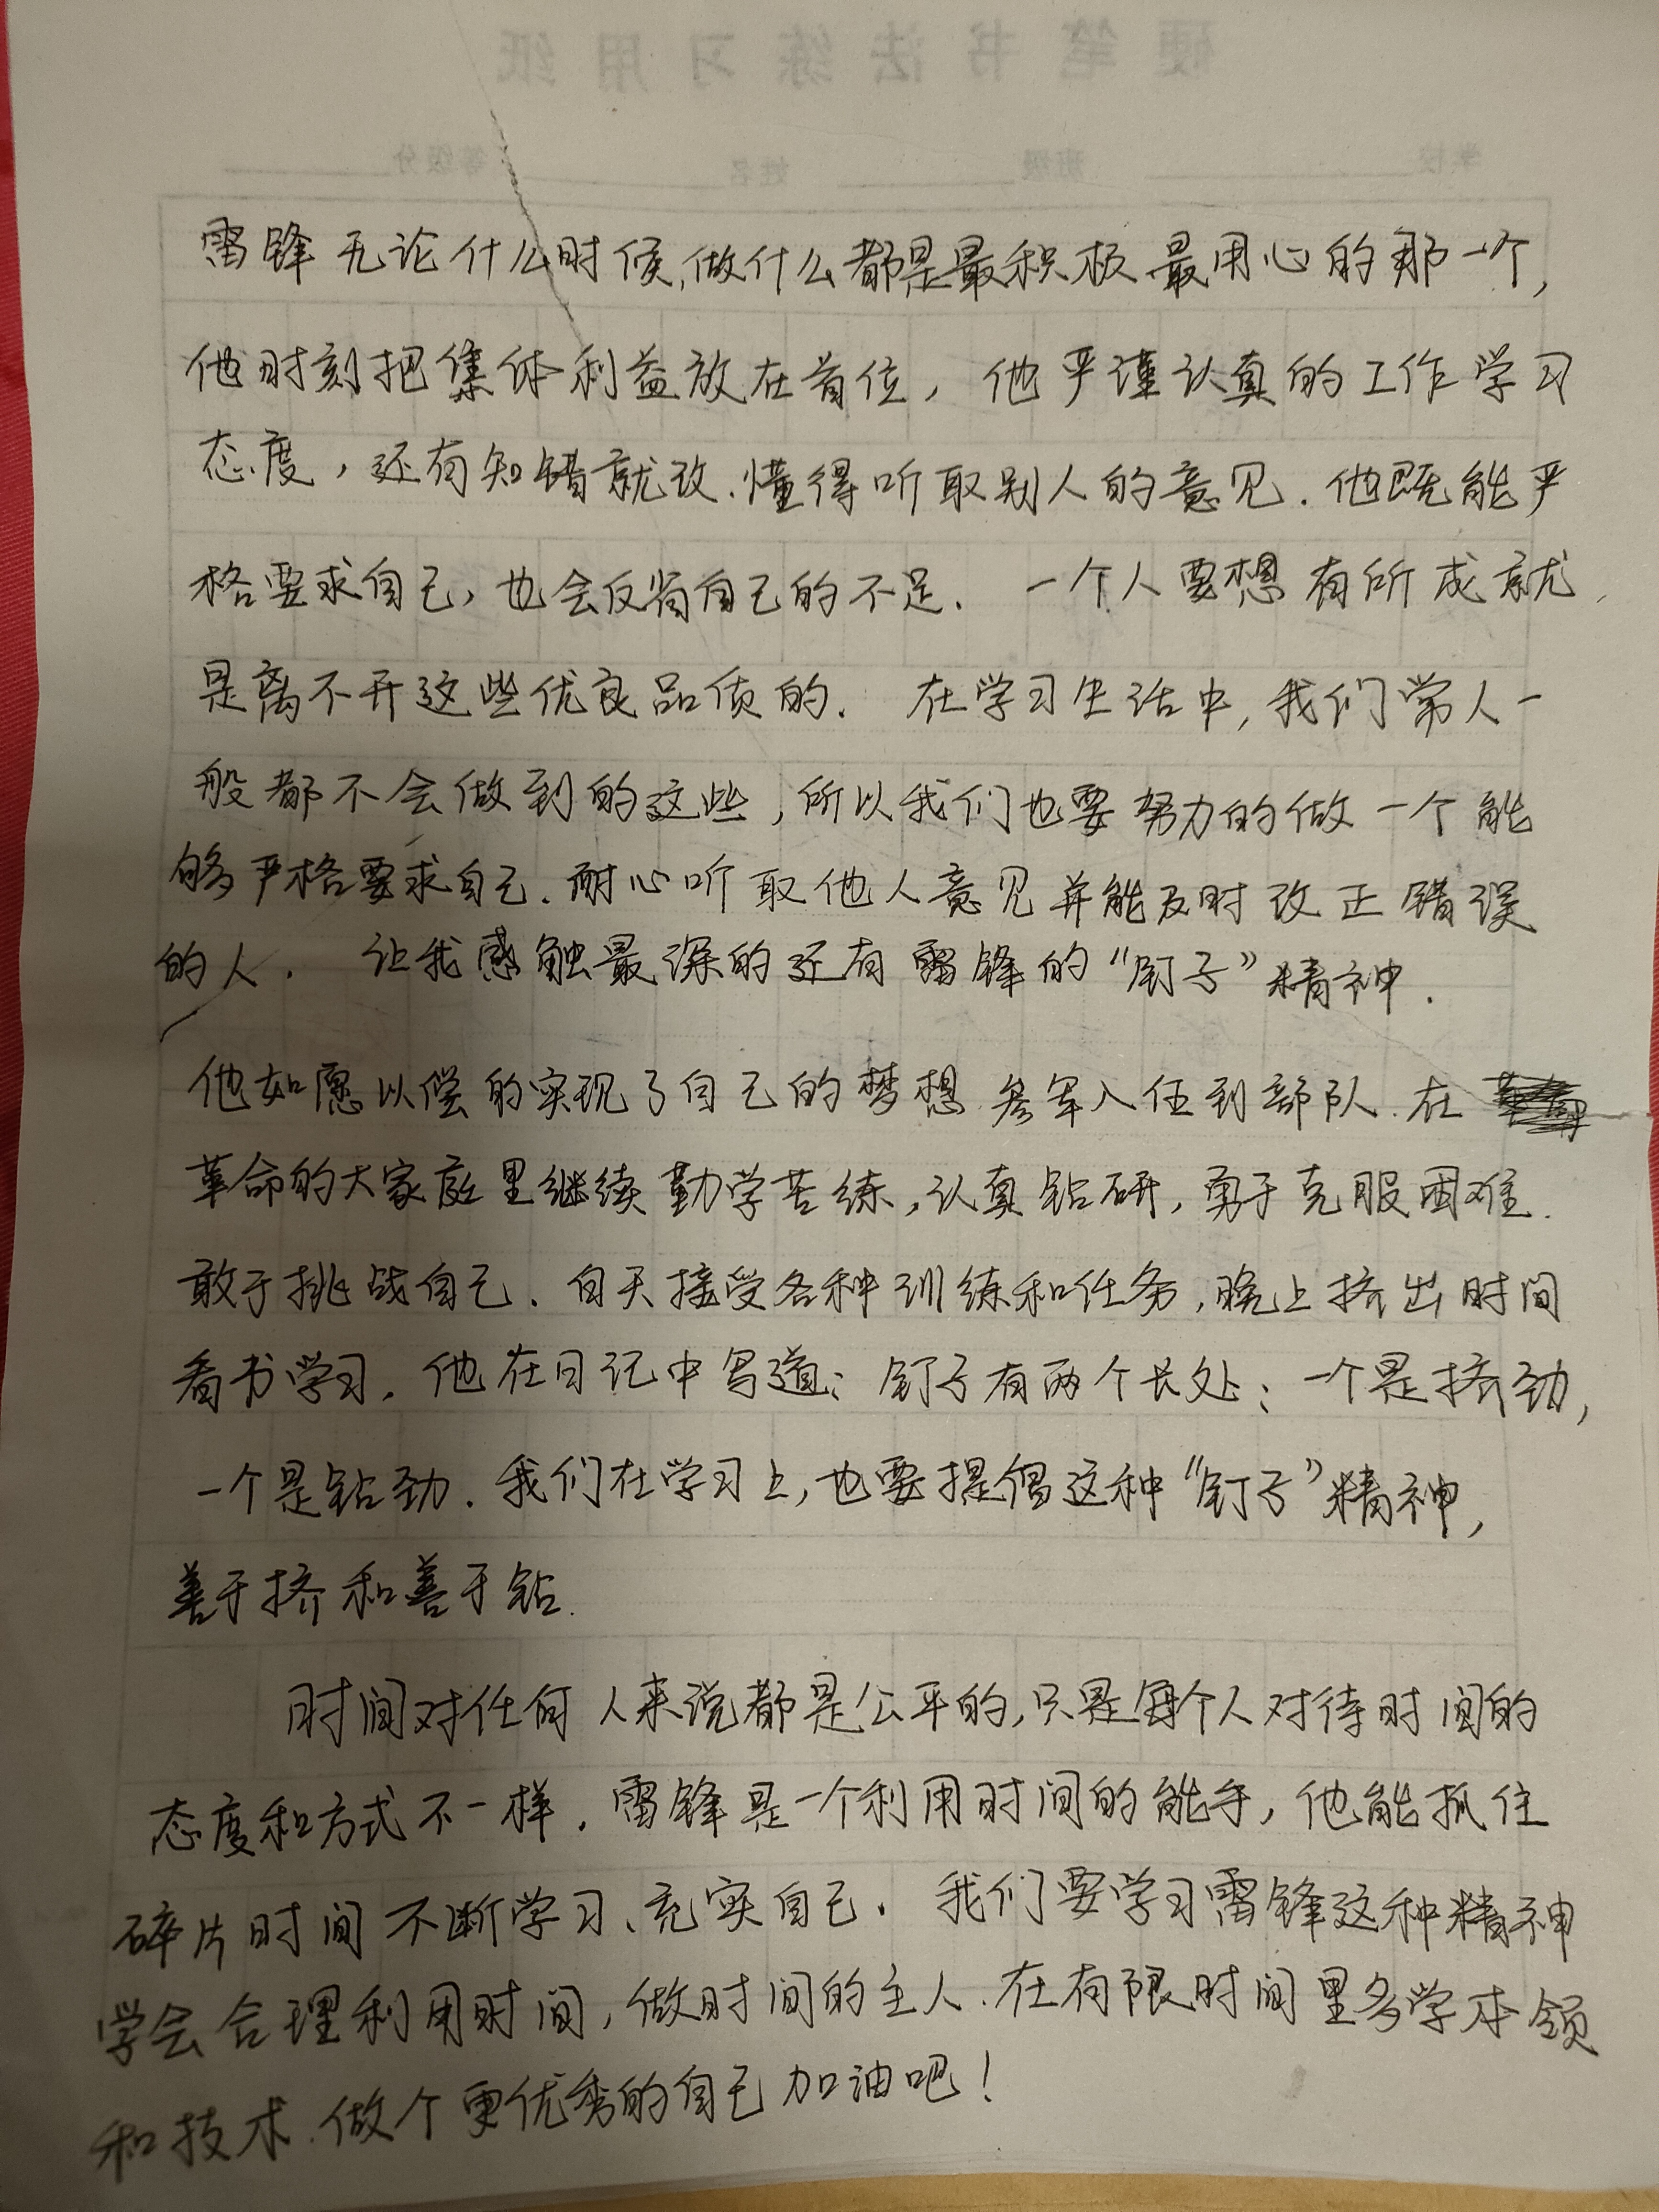 硬笔书法练习用纸
学校 班级 姓名 等级分
雷锋无论什么时候,做什么都是最积极最用心的那一个,
他时刻把集体利益放在首位，他严谨认真的工作学习
态度，还有知错就改、懂得听取别人的意见.他既能严
格要求自己，也会反省自己的不足. 一个人要想有所成就,
是离不开这些优良品质的. 在学习生活中,我们常人一
般都不会做到的这些,所以我们也要努力的做一个能
够严格要求自己.耐心听取他人意见并能及时改正错误
的人. 让我感触最深的还有雷锋的“钉子”精神.
他如愿以偿的实现了自己的梦想.参军入伍到部队.在
革命的大家庭里继续勤学苦练,认真钻研,勇于克服困难.
敢于挑战自己.白天接受各种训练和任务,晚上挤出时间
看书学习.他在日记中写道:钉子有两个长处:一个是挤劲,
一个是钻劲.我们在学习上,也要提倡这种“钉子”精神,
善于挤和善于钻.
时间对任何人来说都是公平的,只是每个人对待时间的
态度和方式不一样.雷锋是一个利用时间的能手,他能抓住
碎片时间不断学习、充实自己.我们要学习雷锋这种精神
学会合理利用时间,做时间的主人.在有限时间里多学本领
和技术.做个更优秀的自己加油吧!